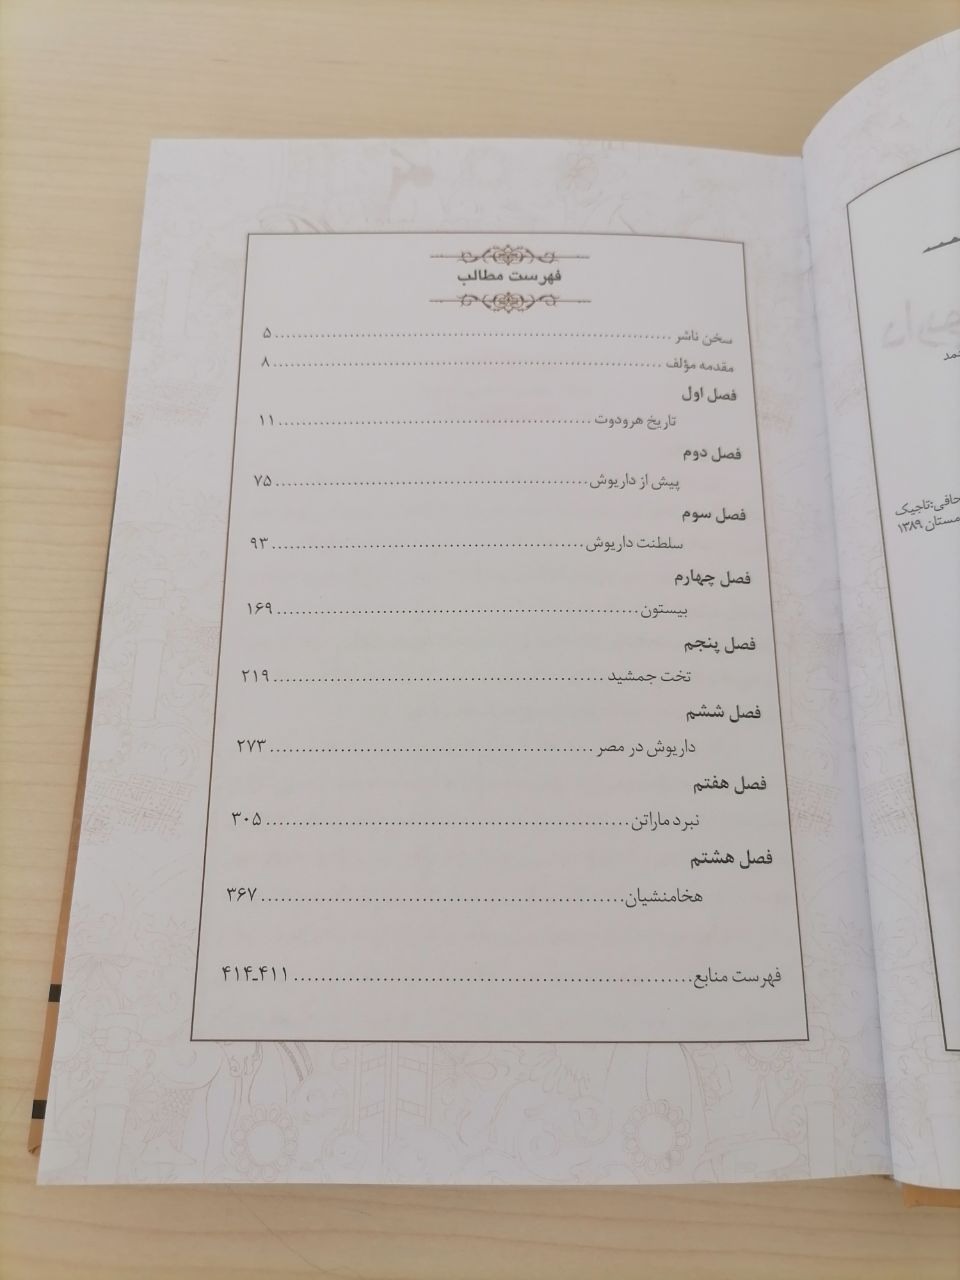 فهرست مطالب
سخن ناشر ........ ۵
مقدمه مؤلف ........ ۸
فصل اول
تاریخ هرودوت ........ ۱۱
فصل دوم
پیش از داریوش ........ ۷۵
فصل سوم
سلطنت داریوش ........ ۹۳
فصل چهارم
بیستون ........ ۱۶۹
فصل پنجم
تخت جمشید ........ ۲۱۹
فصل ششم
داریوش در مصر ........ ۲۷۳
فصل هفتم
نبرد ماراتن ........ ۳۰۵
فصل هشتم
هخامنشیان ........ ۳۶۷
فهرست منابع ........ ۴۱۱ـ۴۱۴
حافی:تاجیک
۱۳۸۹